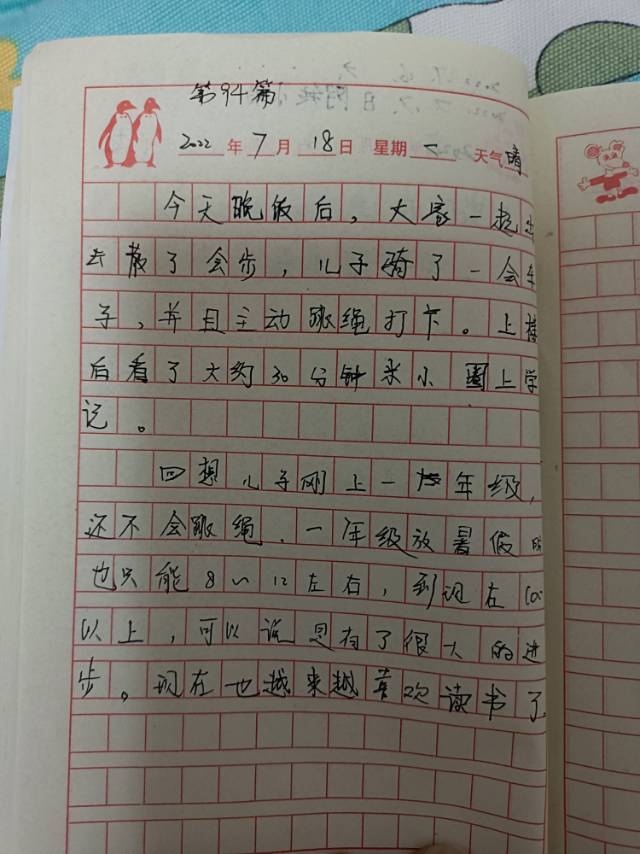 第94篇
2022年7月18日 星期一 天气晴
今天晚饭后，大家一起出
去散了会步，儿子骑了一会车
子，并且主动跳绳打卡。上楼
后看了大约30分钟米小圈上学
记。
回想儿子刚上一年级，
还不会跳绳．一年级放暑假时
也只能8~12左右，到现在
以上，可以说是有了很大的进
步。现在也越来越喜欢读书了